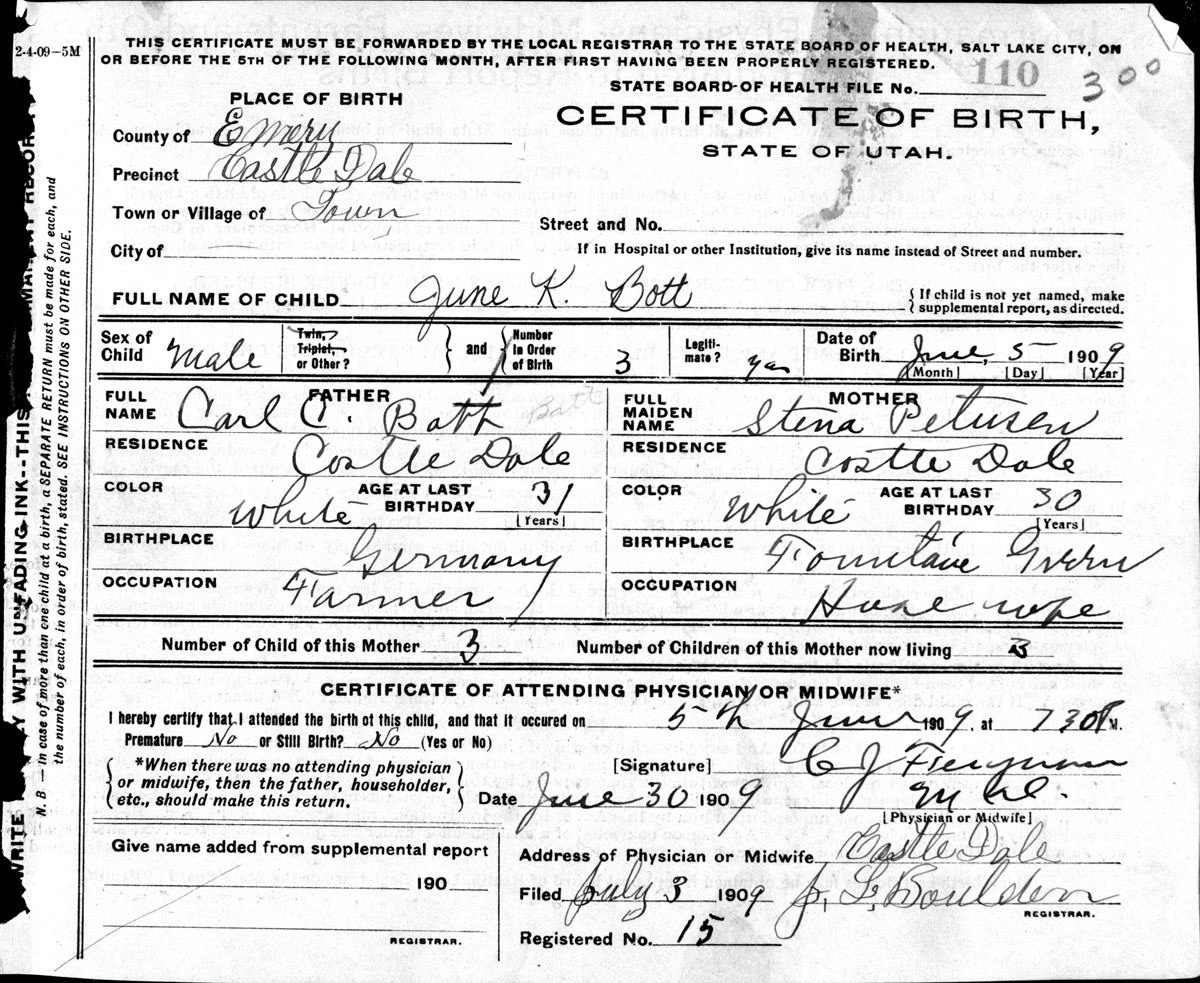 2-4-09-5M
THIS CERTIFICATE MUST BE FORWARDED BY THE LOCAL REGISTRAR TO THE STATE BOARD OF HEALTH, SALT LAKE CITY, ON
OR BEFORE THE 5TH OF THE FOLLOWING MONTH, AFTER FIRST HAVING BEEN PROPERLY REGISTERED.
110
300
STATE BOARD OF HEALTH FILE No.
PLACE OF BIRTH
CERTIFICATE OF BIRTH,
STATE OF UTAH.
County of Emery
Precinct Castle Dale
Town or Village of Town
Street and No.
City of
If in Hospital or other Institution, give its name instead of Street and number.
FULL NAME OF CHILD June K. Bott
{ If child is not yet named, make
supplemental report, as directed.
Sex of Child Male
Twin, Triplet, or Other?
and
Number in Order of Birth 3
Legiti-mate? yes
Date of Birth June, 5 1909
[Month] [Day] [Year]
FATHER
FULL NAME Carl C. Bott Bott
RESIDENCE Castle Dale
COLOR White
AGE AT LAST BIRTHDAY 31
[Years]
BIRTHPLACE Germany
OCCUPATION Farmer
MOTHER
FULL MAIDEN NAME Stena Petersen
RESIDENCE Castle Dale
COLOR White
AGE AT LAST BIRTHDAY 30
[Years]
BIRTHPLACE Fountain Green
OCCUPATION House wife
Number of Child of this Mother 3
Number of Children of this Mother now living 3
CERTIFICATE OF ATTENDING PHYSICIAN OR MIDWIFE*
I hereby certify that I attended the birth of this child, and that it occured on 5th June 1909, at 730 P M.
Premature No or Still Birth? No (Yes or No)
{ *When there was no attending physician
or midwife, then the father, householder,
etc., should make this return. }
[Signature] C J
M.D.
Date June 30 1909
[Physician or Midwife]
Give name added from supplemental report
190
REGISTRAR.
Address of Physician or Midwife Castle Dale
Filed July 3 1909 J. L. Boulden
REGISTRAR.
Registered No. 15
WRITE WITH UNFADING INK--THIS RECORD.
N. B.—In case of more than one child at a birth, a SEPARATE RETURN must be made for each, and
the number of each, in order of birth, stated. SEE INSTRUCTIONS ON OTHER SIDE.